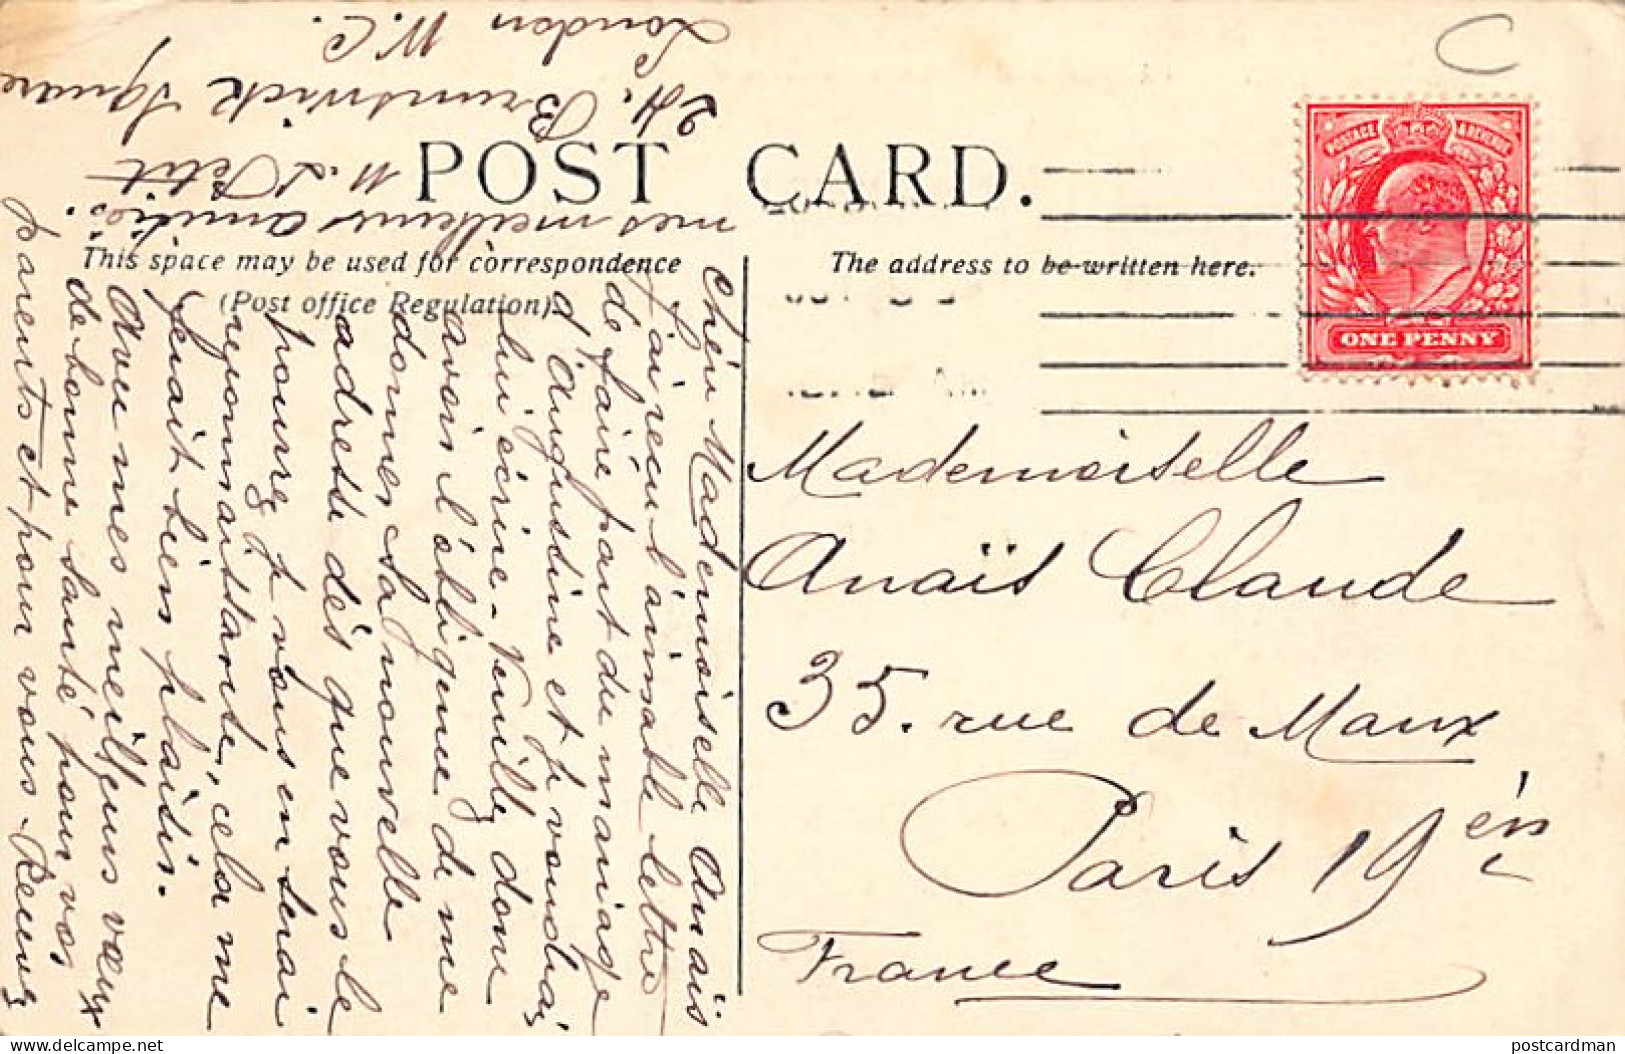 POST CARD.
This space may be used for correspondence
(Post office Regulation).
The address to be written here.
POSTAGE & REVENUE
ONE PENNY
Mademoiselle
Anaïs Claude
35. rue de Maux
Paris 19
France
Chère Mademoiselle Anaïs
J'ai reçu l'aimable lettre
de faire part du mariage
d'Augustine et j voudrai
lui écrire - Veuillez donc
avoir l'obligence de me
donner sa nouvelle
adresse dès que vous le
pourrez, j vous en serai
reconnaissante, cela me
ferait bien plaisir.
Avec mes meilleurs vœux
de bonne santé pour vos
parents et pour vous - Recevez
mes meilleurs amitiés.
Petit
24. Brunswick Square
London W.C.
postcardman